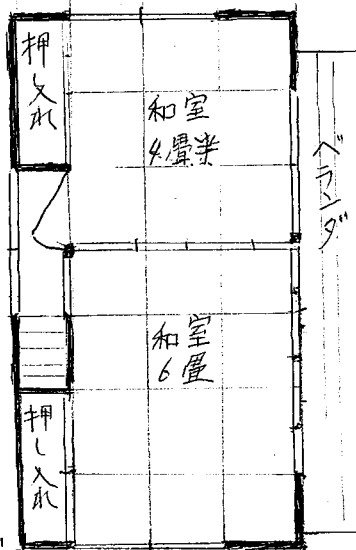 押し入れ
和室
4.畳半
ベランダ
和室
6畳
押し入れ
1